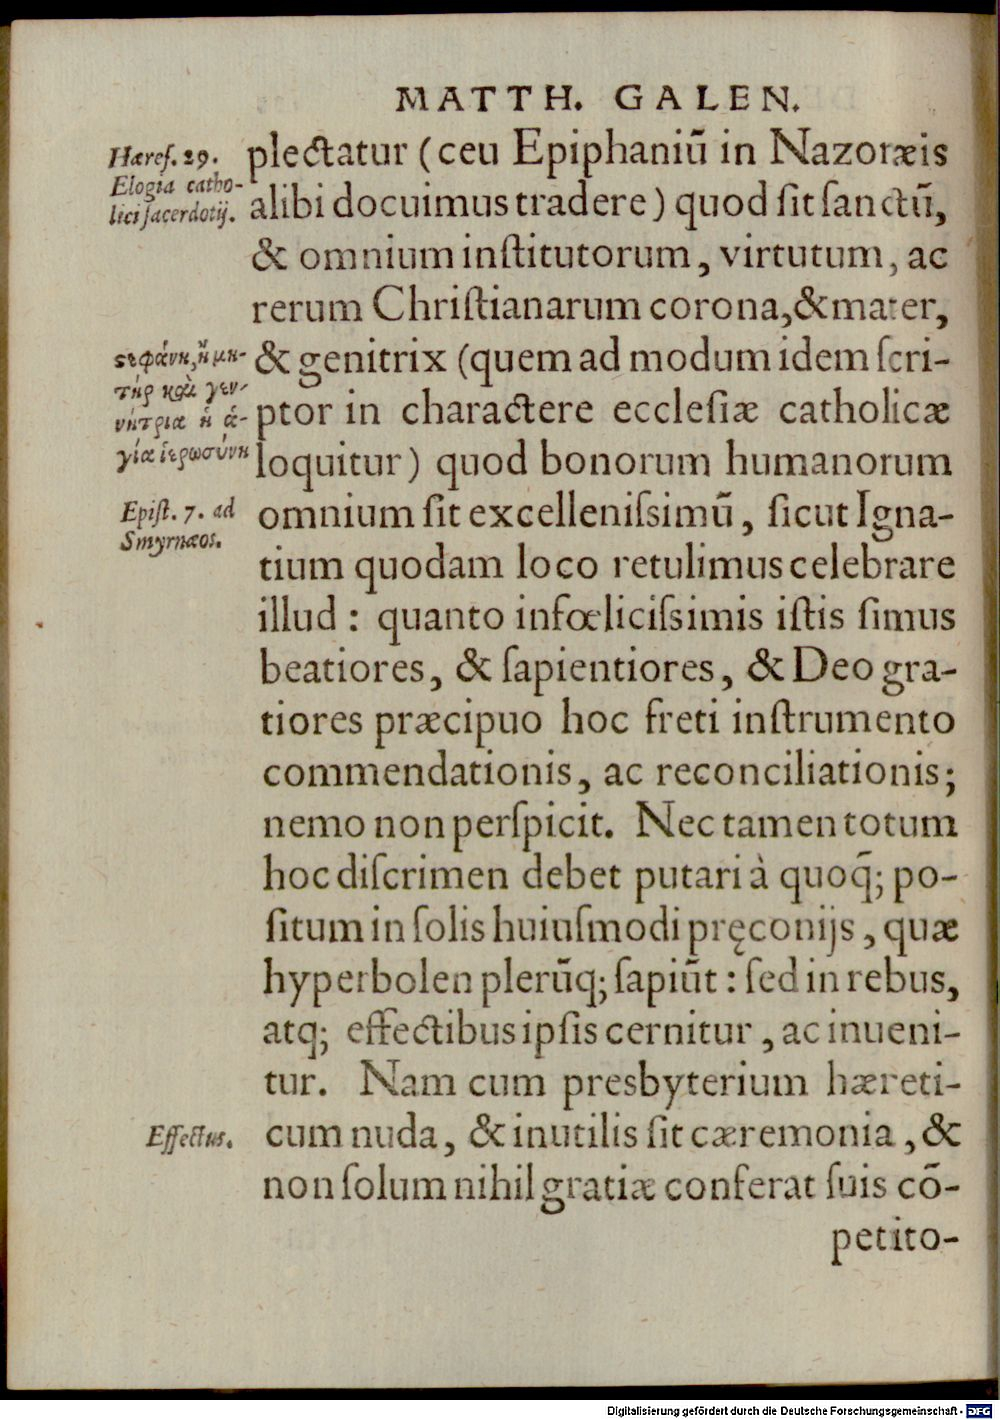 MATTH. GALEN.
Hæreſ. 29.
Elogia catho-
lici ſacerdotij.
plectatur (ceu Epiphaniū in Nazoræis
alibi docuimus tradere) quod ſit ſanctū,
& omnium inſtitutorum, virtutum, ac
rerum Chriſtianarum corona, & mater,
ϛεφάνη, ἢ μη-
τὴρ καὶ γεν-
νήτρια ἡ ἁ-
γία ἱερωσύνη
& genitrix (quem ad modum idem ſcri-
ptor in charactere eccleſiæ catholicæ
loquitur) quod bonorum humanorum
Epiſt. 7. ad
Smyrnæos.
omnium ſit excelleniſsimū, ſicut Igna-
tium quodam loco retulimus celebrare
illud : quanto infœliciſsimis iſtis ſimus
beatiores, & ſapientiores, & Deo gra-
tiores præcipuo hoc freti inſtrumento
commendationis, ac reconciliationis;
nemo non perſpicit. Nec tamen totum
hoc diſcrimen debet putari à quoq̄; po-
ſitum in ſolis huiuſmodi pręconijs, quæ
hyperbolen plerūq; ſapiūt : ſed in rebus,
atq; effectibus ipſis cernitur, ac inueni-
tur. Nam cum presbyterium hæreti-
Effectus.
cum nuda, & inutilis ſit cæremonia, &
non ſolum nihil gratiæ conferat ſuis cō-
petito-
Digitalisierung gefördert durch die Deutsche Forschungsgemeinschaft - DFG